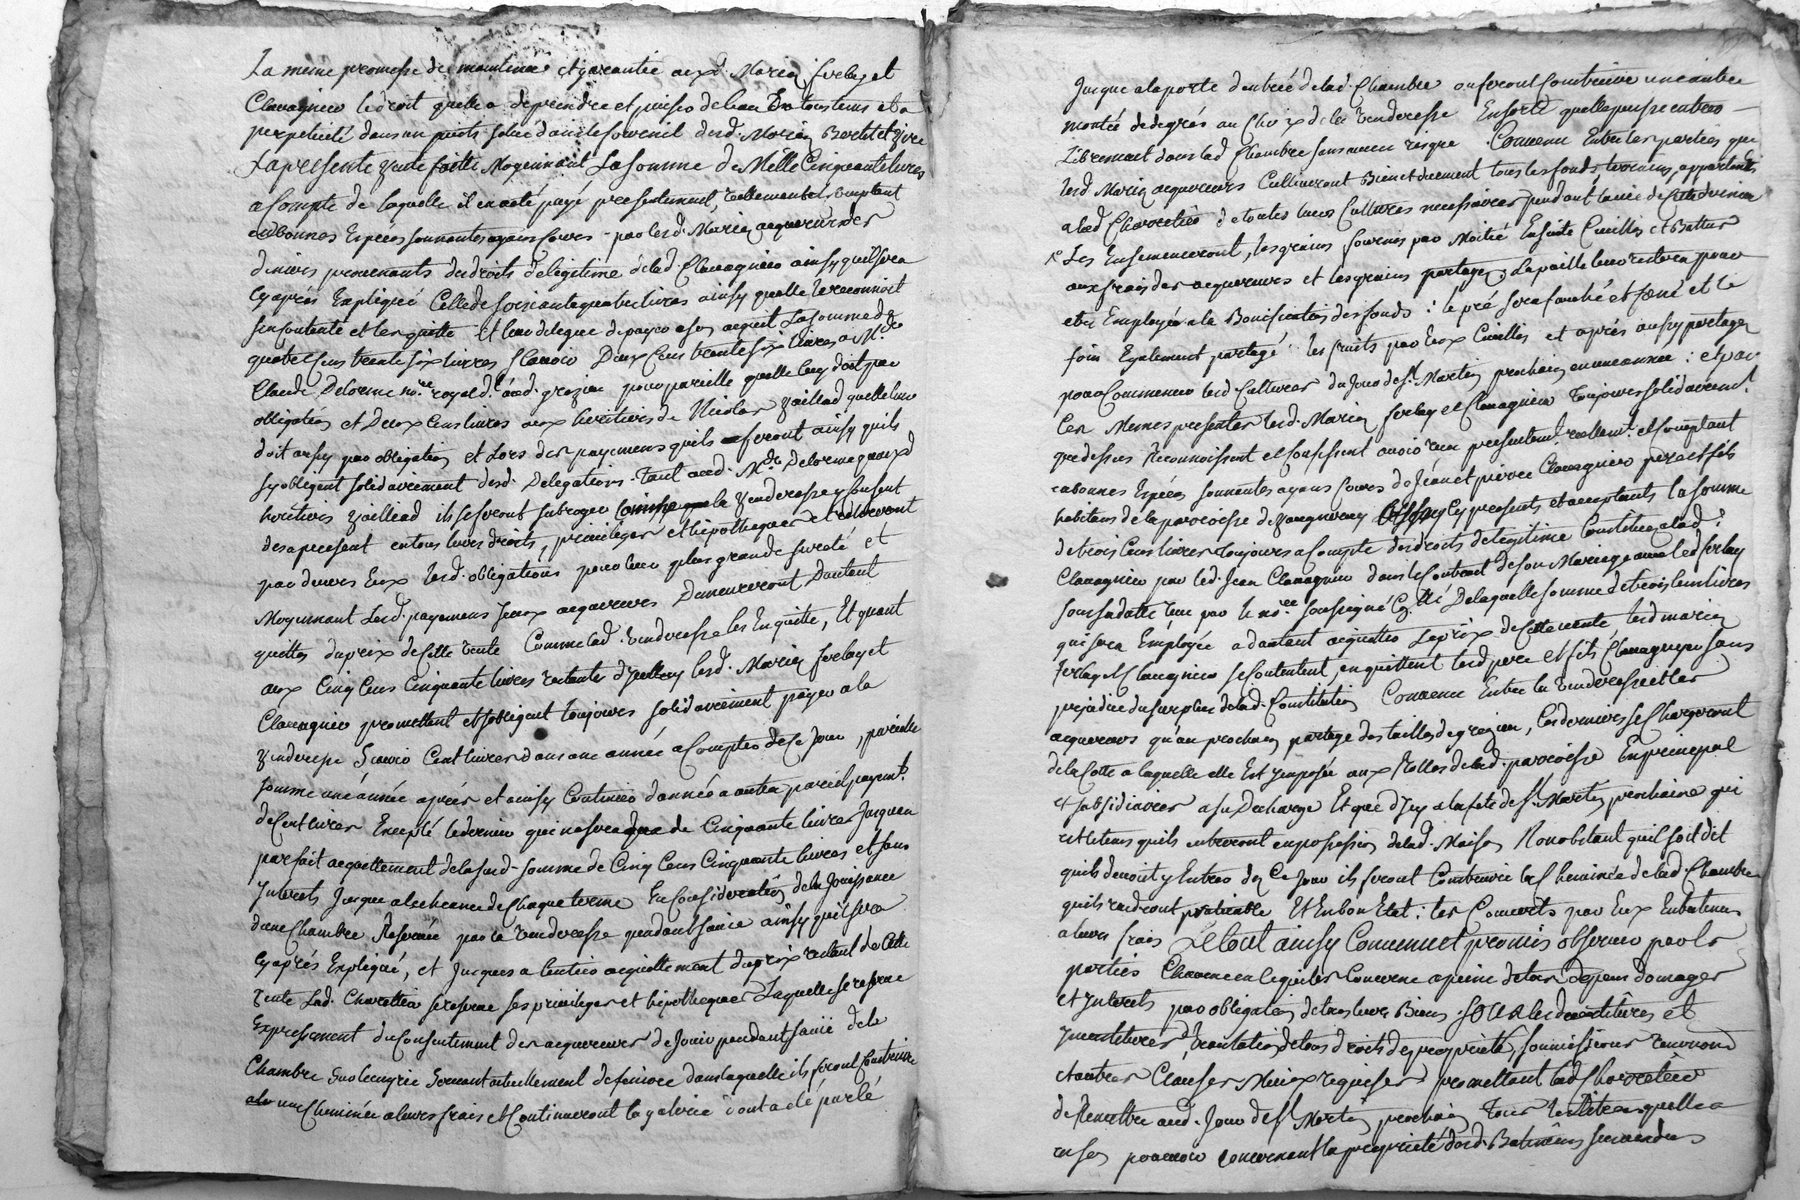 La meme promesse de maintenue et garantie auxd. Marin, forlay et
Clavagnier le droit quelle a de prendre et puiser de leau En tous tems et a
perpetuité dans un puits situé dans le fournil dud. Marin Berthet
La presente vente faitte Moyennant La somme de Mille Cinquante livres
a Compte de laquelle il en a eté payé presentement, reellement et comptant
en bonnes Espèces sonnantes ayans Cours par lesd. Marin acquereurs des
deniers provenants des droits de legitime de lad. Clavagnier ainsy quil sera
cy après Expliqué Celle de soixante quatre livres ainsy quelle le reconnoit
sen contente et les quitte Et leur delegue de payer a son acquit La somme de
quatre Cens trente six livres Scavoir Deux Cens trente six livres a Me
Claude Delorme nore royal dt aud. grezin pour pareille quelle luy doit par
obligation et Deux Cens livres aux heritiers de Nicolas Vaillad quelle leur
doit aussy par obligation et Lors des payemens quils feront ainsy quils
sy obligent solidairement desd. Delegations Tant aud. Me Delorme quauxd
heritiers Vaillad ils seront subrogés Comme la Venderesse y Consent
des a present en tous leurs droits, privileges et hipotheques et retireront
par devers Eux lesd. obligations pour leur plus grande sureté et
Moyennant Lesd. payemens Iceux acquereurs Demeureront Dautant
quittes du prix de cette vente Comme lad. venderesse les En quitte, Et quant
aux Cinq Cens Cinquante livres restantes lesd. Marin forlay et
Clavagnier promettent et sobligent toujours solidairement payer a la
Venderesse Scavoir Cent livres dans une année a Compter de Ce Jour, pareille
somme une année après et ainsy Continuer dannée a autre pareil payemt.
de Cent livres Excepté le dernier qui ne sera que de Cinquante livres Jusquau
parfait acquittement de la susd. somme de Cinq Cens Cinquante livres et sans
Interets Jusque a lecheance de Chaque terme En Consideration de la Jouissance
dune Chambre Reservée par la Venderesse pendant sa vie ainsy quil sera
cy après Expliqué, et Jusques a lentier acquittement du prix restant de Cette
vente Lad. Charretier se reserve ses privileges et hipotheques Laquelle se reserve
Expressement du Consentement des acquereurs de Jouir pendant sa vie de la
Chambre servant actuellement de feniere dans laquelle ils feront Construire
une Cheminée a leurs frais et Continueront la galerie dont a eté parlé
Jusque a la porte dentrée de lad. Chambre ou feront Construire une autre
montée de degrés au Choix de la Venderesse En sorte quelle puisse entrer
Librement dans lad. Chambre sans aucun risque. Convenu Entre les parties que
lesd. Marin acquereurs Cultiveront Bien et duement tous les fonds, terrains, appartenants
a lad. Charretier de toutes leurs Cultures necessaires pendant la vie de cette derniere
Les Ensemenceront, les grains fournis par Moitié Ensuite Cueillis et Battus
aux frais des acquereurs et les grains partagés, La paille leur restera pour
etre Employée a la Bonification des fonds : le pré sera fauché et fané et le
foin Egalement partagé : les fruits par Eux Cueillis et après aussy partagés
pour Commencer lesd. Cultures du Jour de St Martin prochain en une année : et par
Ces Memes presentes lesd. Marin forlay et Clavagnier Toujours solidairemt.
que dessus Reconnoissent et Confessent avoir reçu presentemt. reellemt. et Comptant
en bonnes Espèces sonnantes ayans Cours de Jean et pierre Clavagnier pere et fils
habitans de la paroisse de Cy presents et acceptants la somme
de trois Cens livres toujours a Compte des droits de legitime Constitués a lad.
Clavagnier par led. Jean Clavagnier dans le Contrat de son Mariage avec led. forlay
sous sa datte reçu par le nore soussigné De laquelle somme de trois Cens livres
qui sera Employée a dautant acquitter le prix de cette vente lesd marin
forlay et Clavagnier se Contentent, en quittent lesd. pere et fils Clavagnier sans
prejudice du surplus de lad. Constitution Convenu Entre la Venderesse et les
acquereurs quau prochain partage des tailles de grezin, Ces derniers se Chargeront
de la Cotte a laquelle elle Est Imposée aux Rolles de lad. paroisse En principal
et subsidiaires a sa Decharge Et que dIcy a la fete de St Martin prochaine qui
est le tems quils entreront en possession de lad. Maison Nonobstant quil soit dit
quils devoit y Entrer des Ce Jour ils feront Construire la Cheminée de lad. Chambre
quils rendront pratiquable Et En bon Etat : les Couverts par Eux Entretenus
a leurs frais Le tout ainsy Convenu et promis observer par les
parties Chacune en ce qui les Concerne a peine de tous depens domages
et Interets par obligation de tous leurs Biens Sous les devestitures et
Investitures, translation de tous droits de propriété, soumissions renvonons
et autres Clauses Mieux requises promettant lad Charretier
de Remettre aud. Jour de St Martin prochain Tous les titres quelle a
en son pouvoir Concernant la propriété desd. Batimens servendus